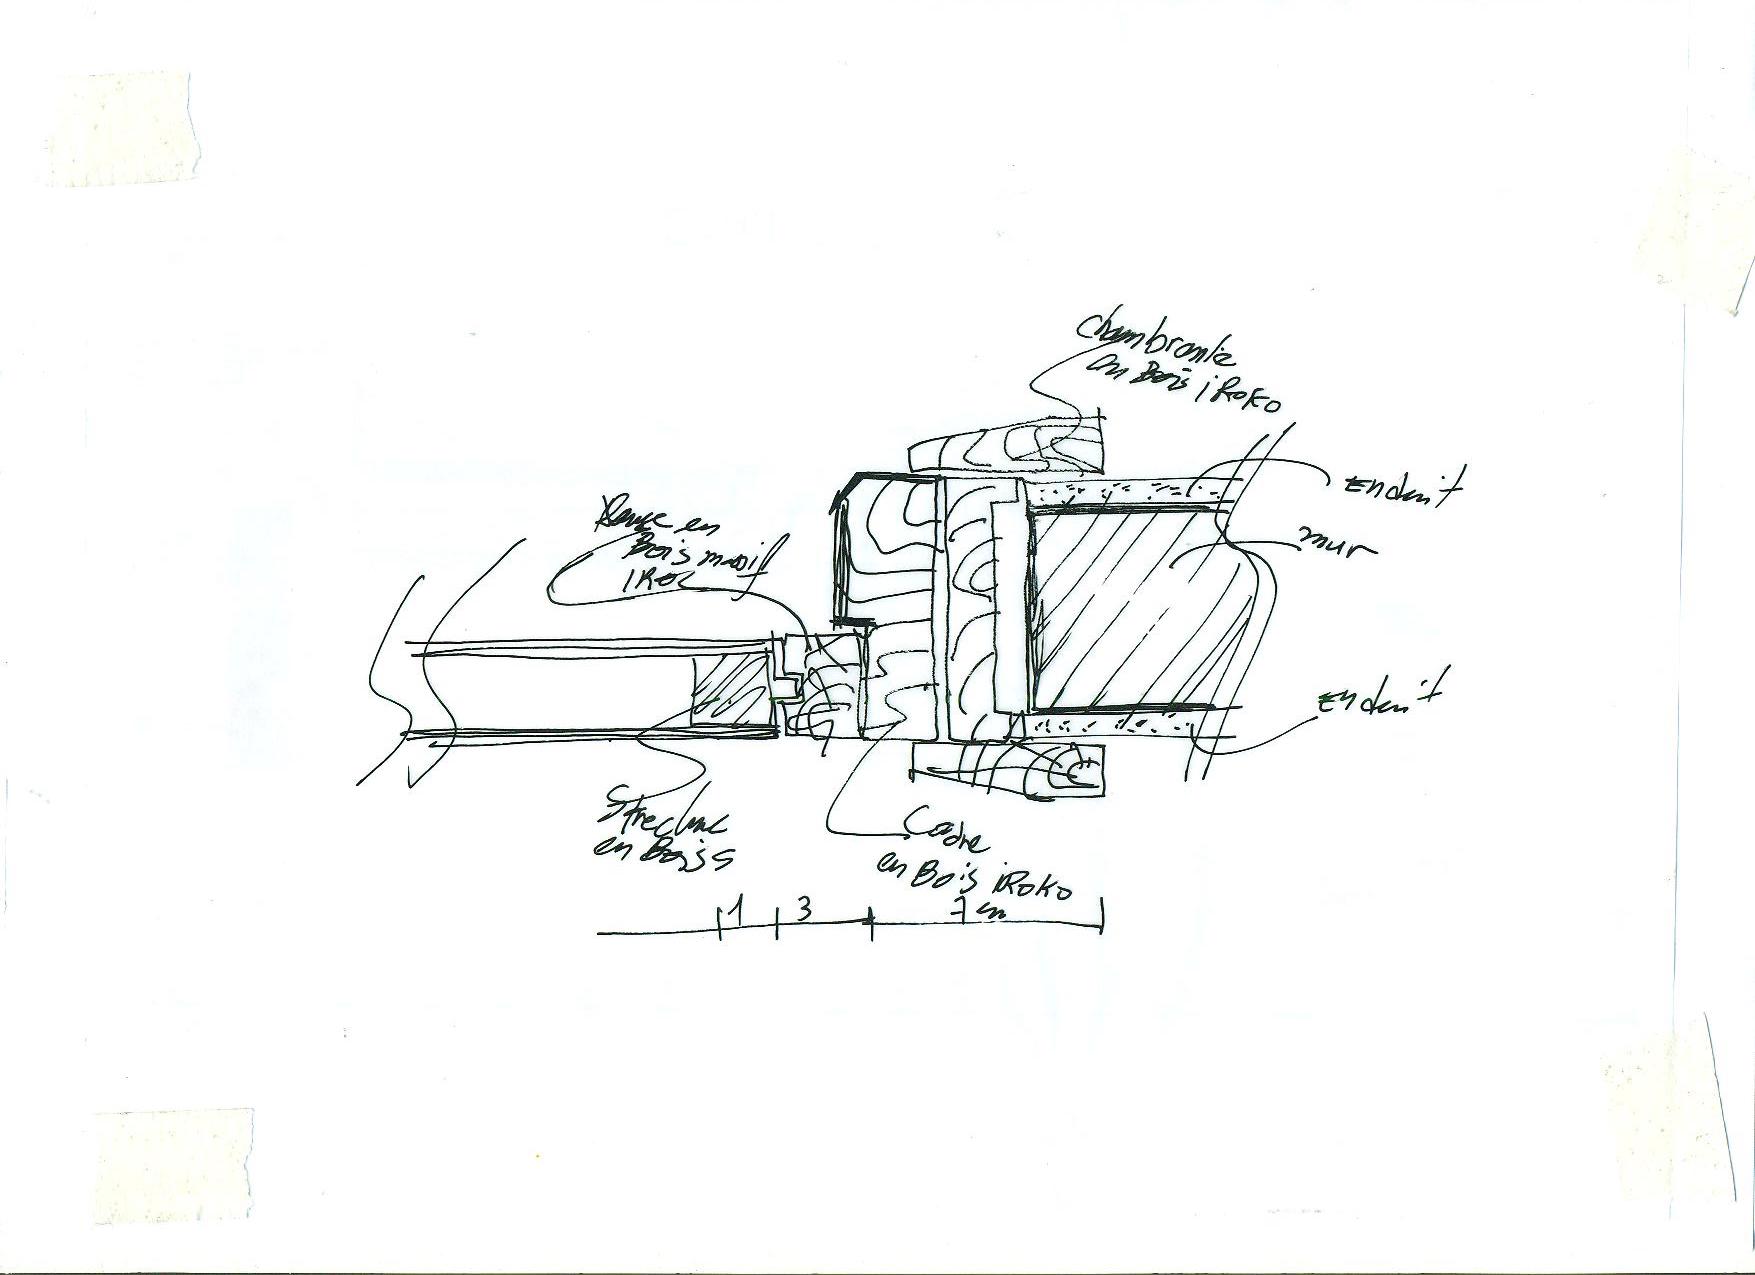 chambranle
en Bois iROKO
Enduit
mur
en
Bois massif
IROC
Enduit
Structure
en Boiss
Cadre
en Bois iROKO
1 3 7 cm